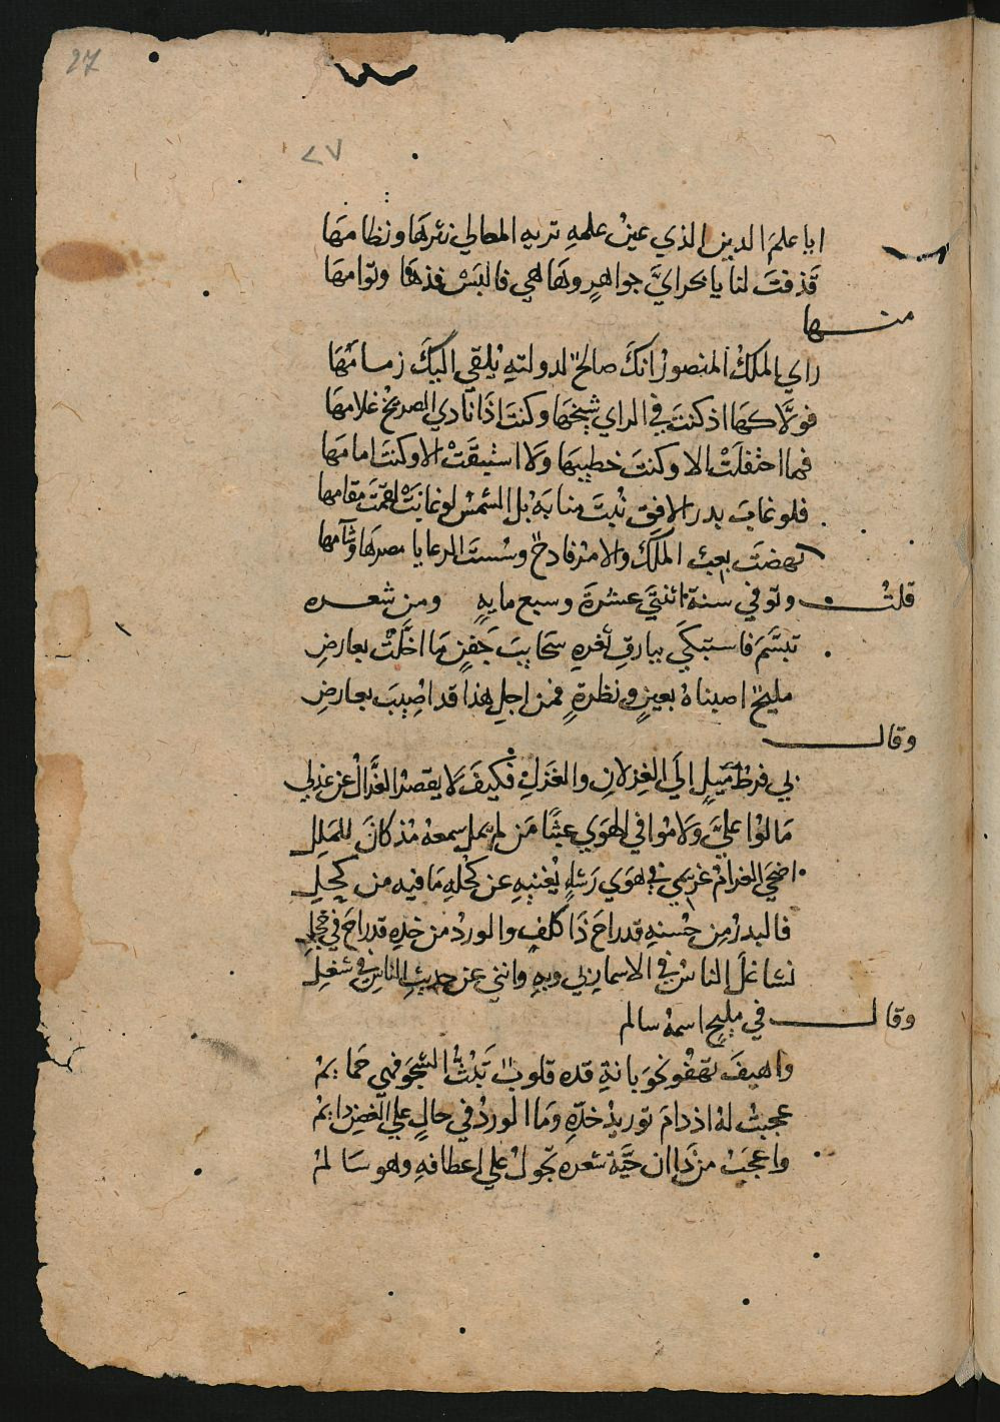 27
٢٧
ايا علمَ الدين الذي عينُ علمهِ تريهِ المعالي نثرهَا ونظامهَا
قَذفتَ لنا يا بحرايَّ جواهرٍ وهَا هي فالبَسْ فذهَا وتوامهَا
منها
راي الملكُ المنصورُ انكَ صالحٌ لدولتهِ يُلقي اليكَ زمامهَا
فولَّاكهَا اذ كنتَ في الراي شيخهَا وكنتَ اذَا نادي الصريخُ غلامهَا
فما احتفلَتْ الا وكنتَ خطيبهَا ولا استبقَتْ الا وكنتَ امامهَا
فلو غابَ بدر الافق نُبتَ منابهُ بل الشمسُ لو غابَتْ لقمتَ مقامها
نهضتَ بعبْ الملك والامرُ فادحٌ وسُستَ الرعايا مصرهَا وشآمها
قلتُ وتوفي سنة اثنتَي عشرةَ وسبع مايةٍ ومن شعره
تبسَّمَ فاستبكَي ببارقِ ثغرهِ سحَايبَ جَفنٍ مَا اخلَّتْ بعارضِ
مليحٌ اصبناهُ بعينٍ ونظرةٍ فمن اجلِ هذا قد اُصِيبَ بعارضِ
وقال
بي فرطُ مَيلٍ اِلَي الغِزلانِ والغَزلِ فكيفَ لَا يقصرُ العَذَّالُ عن عذلي
مَالوُا عليَّ ولَاموُا في الهوَي عبثًا مَن لم يمل سمعهُ مُذ كانَ للمَلِلِ
اضحَي الغرامُ غريمي في هوَي رَشاءٍ يُغنيهِ عن كُحْلهِ مَا فيه من كَحِلِ
فالبدرُ مِن حُسنهِ قد راحَ ذَا كلَفٍ والوردُ من خدِهِ قد راحَ في خجلِ
تشاغلَ الناسُ في الاسمارِ بي وبهِ وانني عن حديثِ الناسِ في شغلِ
وقال في مليحٍ اسمهُ سالم
واهيفَ تهفوُ نحوَ بانةِ قده قلوبٌ تَبُثُّ الشجوَ فهي حَمايمُ
عجبتُ لهُ اذ دامَ توريدُ خدّهِ ومَا الوردُ في حالٍ علي الغصنِ دايمُ
واعجَبُ من ذَا ان حيَّة شعره تجولُ علي اعطافهِ وهو سَالمُ